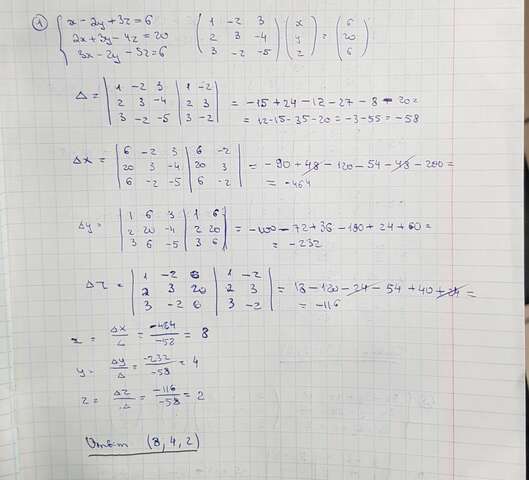 ① { x - 2y + 3z = 6
2x + 3y - 4z = 20
3x - 2y - 5z = 6
( 1 -2 3
2 3 -4
3 -2 -5 ) ( x
y
z ) = ( 6
20
6 )
Δ = | 1 -2 3 | 1 -2 |
| 2 3 -4 | 2 3 |
| 3 -2 -5 | 3 -2 | = -15 + 24 - 12 - 27 - 8 - 20 =
= 12 - 15 - 35 - 20 = -3 - 55 = -58
Δx = | 6 -2 3 | 6 -2 |
| 20 3 -4 | 20 3 |
| 6 -2 -5 | 6 -2 | = -90 + 48 - 120 - 54 - 48 - 200 =
= -464
Δy = | 1 6 3 | 1 6 |
| 2 20 -4 | 2 20 |
| 3 6 -5 | 3 6 | = -100 - 72 + 36 - 180 + 24 + 60 =
= -232
Δz = | 1 -2 6 | 1 -2 |
| 2 3 20 | 2 3 |
| 3 -2 6 | 3 -2 | = 18 - 120 - 24 - 54 + 40 + 24 =
= -116
x = Δx/Δ = -464/-58 = 8
y = Δy/Δ = -232/-58 = 4
z = Δz/Δ = -116/-58 = 2
Ответ (8, 4, 2)